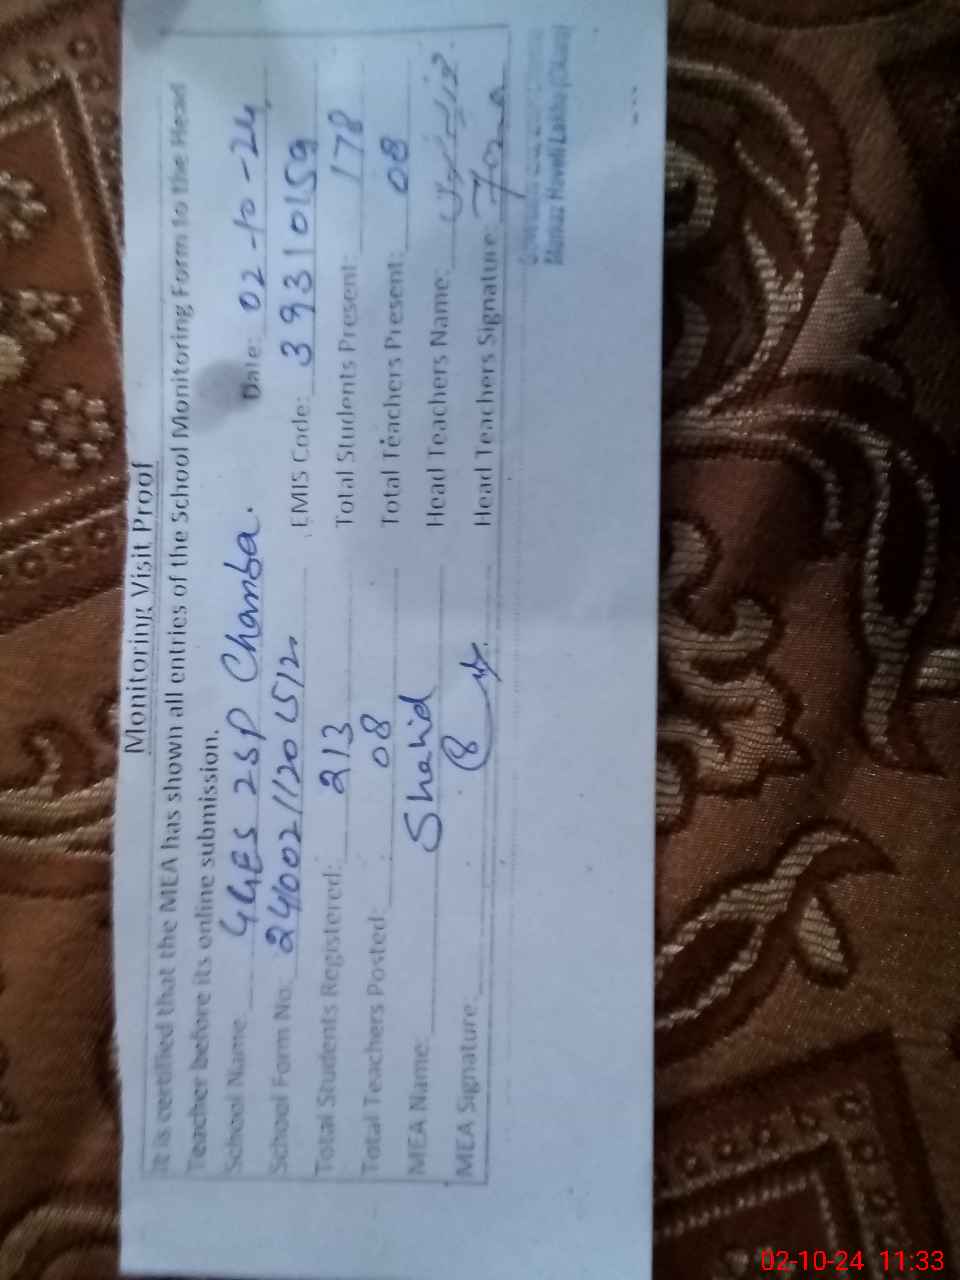 Monitoring Visit Proof
It is certified that the MEA has shown all entries of the School Monitoring Form to the Head
Teacher before its online submission.
School Name: GGES 2SP Chamba. Date: 02-10-24
School Form No: EMIS Code: 39310159
Total Students Registered: 213 Total Students Present: 178
Total Teachers Posted: 08 Total Teachers Present: 08
MEA Name: Shahid Head Teachers Name:
MEA Signature: Head Teachers Signature:
02-10-24 11:33